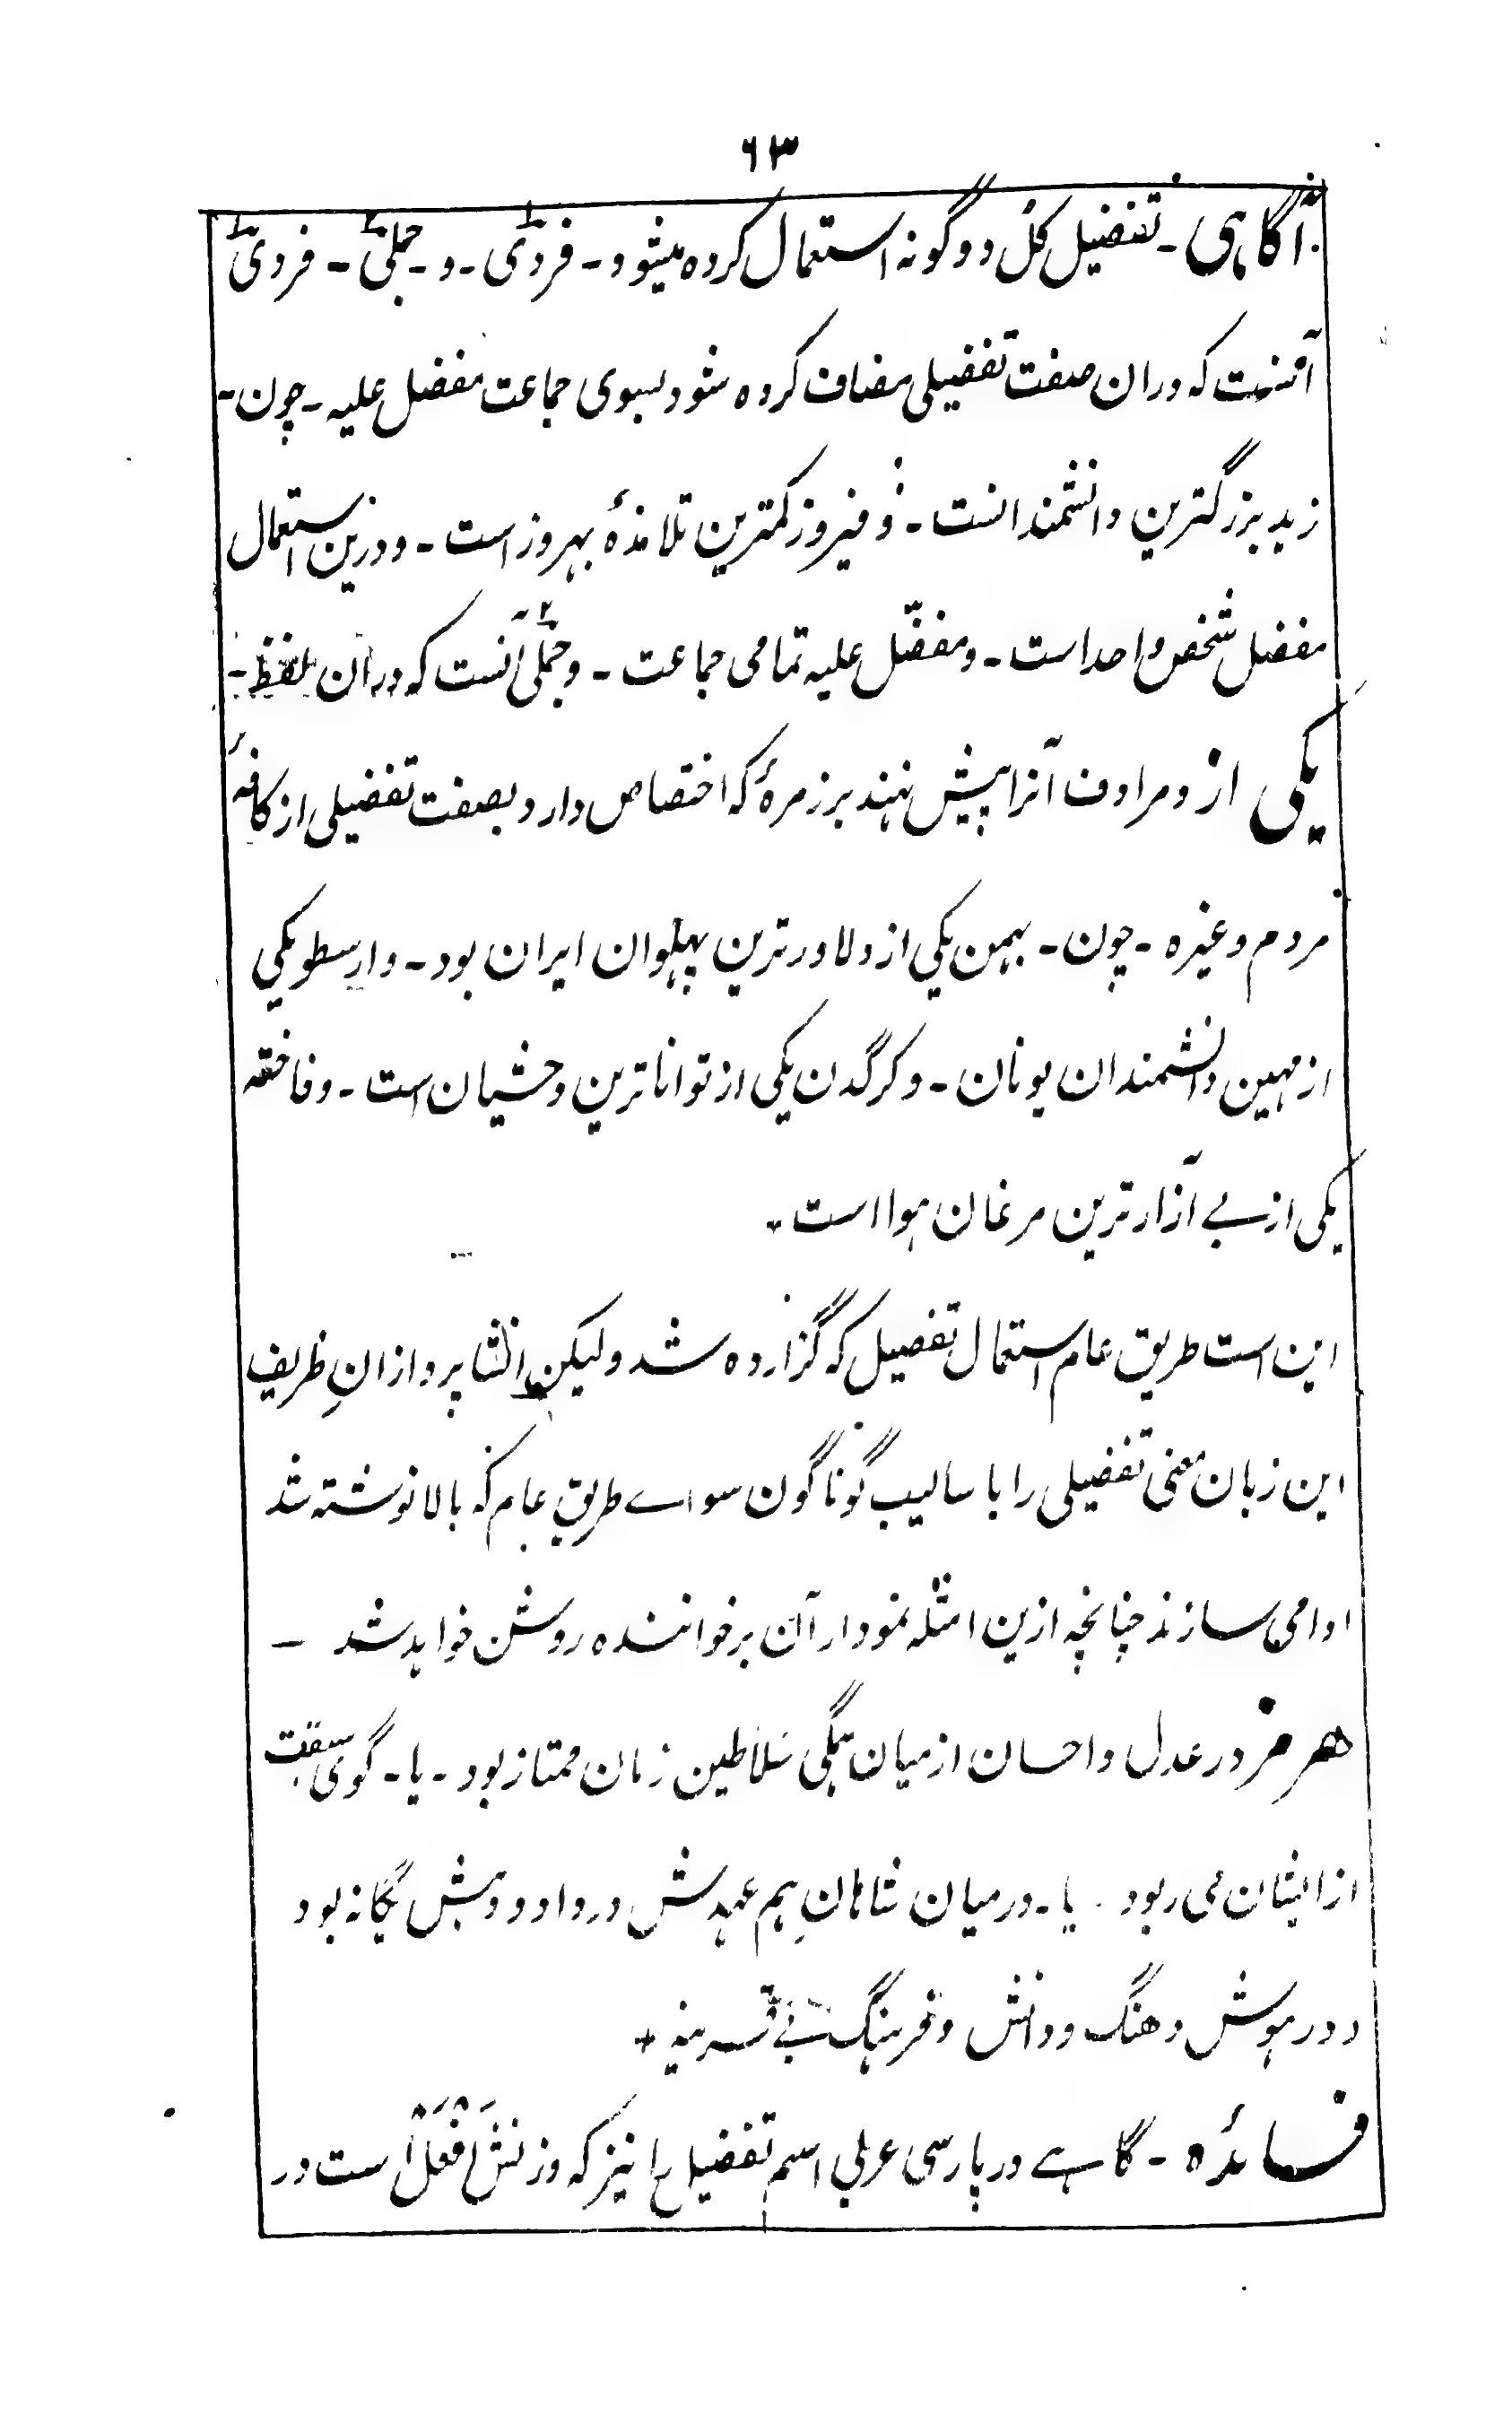 ٦٣
آگاہی - تفضیل کل دو گونه استعمال کرده میشود - فردی - و - جملی - فردی
آنست که دران صفت تفضیلی مضاف کرده شود بسوی جماعت مفضل علیه - چون -
زید بزرگترین دانشمندانست - و فیروز کمترین تلامذهٔ بهروز است - و درین استعمال
مفضل شخص واحد است - و مفضّل علیه تمامی جماعت - و جملی آنست که دران لفظ -
یکی از و مرادف آنرا پیش نهند بر زمرهٔ که اختصاص دارد بصفت تفضیلی از کافهٔ
مردم و غیره - چون - بهمن یکی از دلاورترین پهلوان ایران بود - و ارسطو یکی
از مهین دانشمندان یونان - و کرگدن یکی از توانا ترین وحشیان است - و فاخته
یکی از بے آزار ترین مرغان هوا است -
این است طریق عام استعمال تفضیل که گزارده شد و لیکن انشا پردازانِ ظریف
این زبان معنی تفضیلی را با سالیب گوناگون سواے طریق عام که بالا نوشته شد
ادا می سازند چنانچه ازین امثله نمودار آن بر خواننده روشن خواهد شد –
هرمز در عدل و احسان از میان همگی سلاطین زمان ممتاز بود - یا - گوی سبقت
از ایشان می ربود - یا - در میان شاهانِ هم عهدش در داد و دهش یگانه بود
و در هوش و هنگ و دانش و فرهنگ بے قرینه +
فائده - گاہے در پارسی عربی اسم تفضیل را نیز که وزنش اَفْعَلْ است در